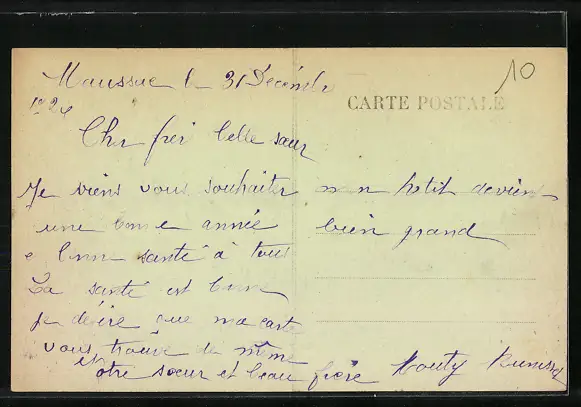 Maussac le 31 Décembre
1924
10
CARTE POSTALE
Cher frère belle sœur
Je viens vous souhaiter
une bonne année
e bonne santé à tous
La santé est bonne
je désire que ma carte
vous trouve de même
Votre sœur et beau frère
mon petit devient
bien grand